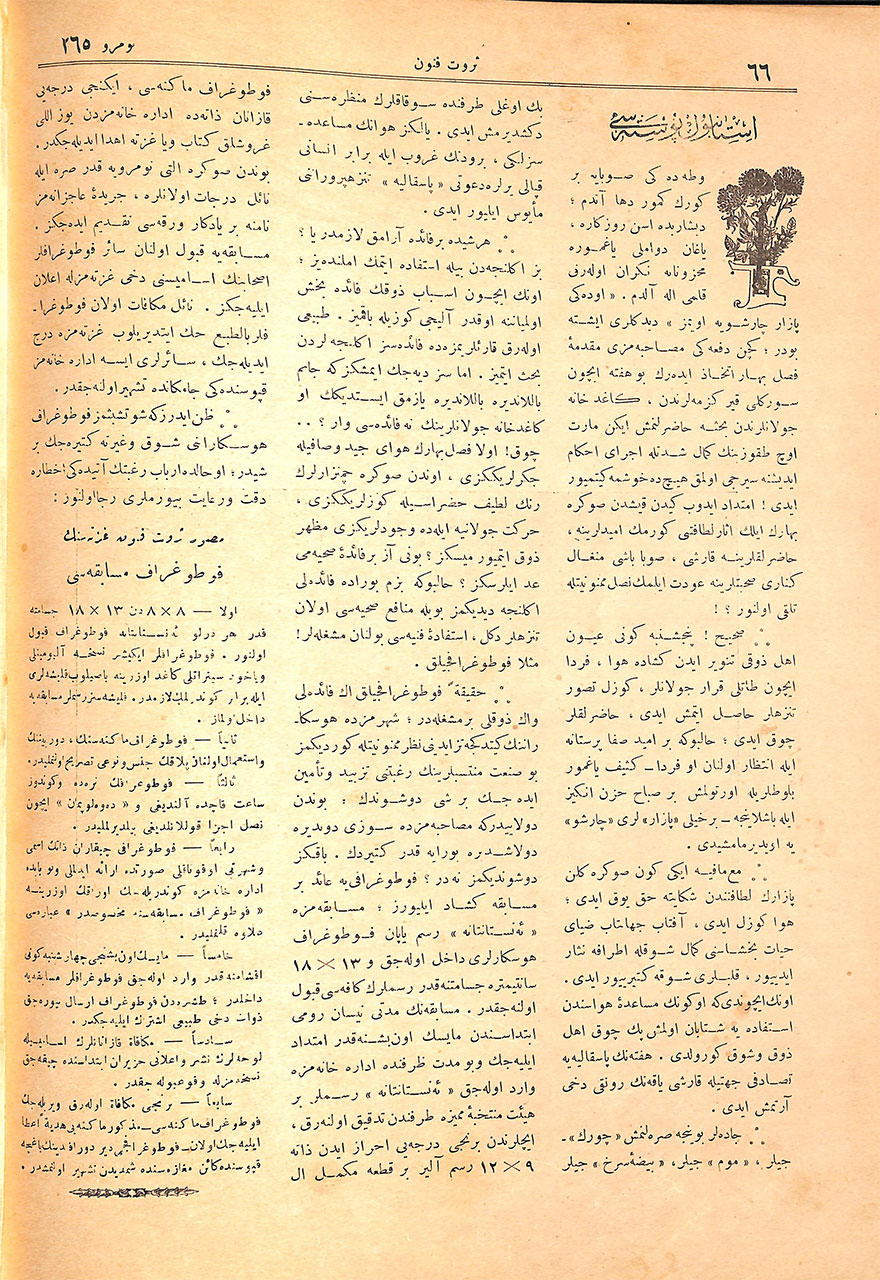 ٦٦
ثروت فنون
نومرو ٢٦٥
استانبول پوسته‌سی
وطه‌ده كی صوبایه بر
كورك كمور دها آتدم ؛
دیشاریده اسن روزكاره ،
یاغان دواملی یاغموره
محزونانه نكران اوله‌رق
قلمی اله آلدم . « اوده‌كی
بازار چارشویه اویمز » دیدكلری ایشته
بودر ؛ كچن دفعه‌كی مصاحبه‌مزی مقدمهٔ
فصل بهار اتخاذ ایده‌رك بو هفته ایچون
سوركلی قیر كزمه‌لرندن ، كاغد خانه
جولانلرندن بحثه حاضرلنمش ایكن مارت
اوچ طقوزینك كمال شدتله اجرای احكام
ایدیشنه سیرجی اولمق هیچ‌ده خوشمه كیتمیور
ایدی ! امتداد ایدوب كیدن قیشدن صوكره
بهارك ایلك اثار لطافتنی كورمك امیدلرینه ،
حاضرلقلرینه قارشی ، صوبا باشی منغال
كناری صحبتلرینه عودت ایلمك نصل ممنونیتله
تلقی اولنور ؟ !
صحیح ! پنجشنبه كونی عیون
اهل ذوقی تنویر ایدن كشاده هوا ، فردا
ایچون طاتلی قرار جولانلر ، كوزل تصور
تنزهلر حاصل ایتمش ایدی ، حاضرلقلر
چوق ایدی ؛ حالبوكه بر امید صفا پرستانه
ایله انتظار اولنان او فردا ـ كثیف یاغمور
بلوطلریله اورتولمش بر صباح حزن انكیز
ایله باشلاینجه ـ برخیلی «بازار» لری «چارشو»
یه اویدیرمامشیدی .
مع‌مافیه ایكی كون صوكره كلن
بازارك لطافتندن شكایته حق یوق ایدی ؛
هوا كوزل ایدی ، آفتاب جهانتاب ضیای
حیات بخشاسنی كمال شوقله اطرافه نثار
ایدییور ، قلبلری شوقه كتیرییور ایدی .
اونك ایچوندی‌كه اوكونك مساعدهٔ هواسندن
استفاده یه شتابان اولمش پك چوق اهل
ذوق وشوق كورولدی . هفته‌نك پاسقالیه‌یه
تصادفی جهتیله قارشی یاقه‌نك رونقی دخی
آرتمش ایدی .
جاده‌لر بونجه صره‌لنمش «چورك»ـ
جیلر ، «موم» جیلر، «بیضهٔ سرخ» جیلر
بك اوغلی طرفنده سوقاقلرك منظره‌سنی
دكشدیرمش ایدی . یالكز هوانك مساعده‌ـ
سزلكی ، برودتك غروب ایله برابر انسانی
قپالی یرلره دعوتی « پاسقالیه » تنزهپرورانی
مأیوس ایلیور ایدی .
هرشیده برفائده آرامق لازمدر یا ؟
بز اكلنجه‌دن بیله استفاده ایتمك املنده‌یز ؛
اونك ایچون اسباب ذوقك فائده بخش
اولمیاننه اوقدر آلیجی كوزیله باقمیز . طبیعی
اوله‌رق قارئلریمزه‌ده فائده‌سز اكلنجه لردن
بحث ایتمیز . اما سز دیه‌جك ایمشكزكه جانم
باللاندیره باللاندیره یازمق ایستدیكك او
كاغدخانه جولانلرینك نه فائده‌سی وار ؟ . .
چوق! اولا فصل بهارك هوای جید وصافیله
جكرلریككزی ، اوندن صوكره چمنزارلرك
رنك لطیف حضراسیله كوزلریككزی ،
حركت جولانیه ایله‌ده وجودلریكزی مظهر
ذوق ایتمیور میسكز ؟ بونی آز برفائدهٔ صحیه‌می
عد ایلرسكز ؟ حالبوكه بزم بوراده فائده‌لی
اكلنجه دیدیكمز بویله منافع صحیه‌سی اولان
تنزهلر دكل ، استفادهٔ فنیه‌سی بولنان مشغله‌لر!
مثلا فوطوغرافجیلق .
حقیقةً فوطوغرافجیلق اك فائده‌لی
واك ذوقلی بر مشغله‌در ؛ شهرمزده هوسكاـ
راننك كیتدكجه تزایدینی نظر ممنونیتله كوردیكمز
بو صنعت منتسبلرینك رغبتنی تزیید وتأمین
ایده جك بر شی دوشوندك : بوندن
دولاییدركه مصاحبه‌مزده سوزی دویدیره
دولاشدیره بورایه قدر كتیردك . باقكز
دوشوندیكمز نه‌در ؟ فوطوغرافی‌یه عائد بر
مسابقه كشاد ایلیورز ؛ مسابقه‌مزه
« ئه‌نستانتانه » رسم یاپان فوطوغراف
هوسكارلری داخل اوله‌جق و ١٣ × ١٨
سانتیمتره جسامتنه قدر رسملرك كافه‌سی قبول
اولنه‌جقدر . مسابقه‌نك مدتی نیسان رومی
ابتداسندن مایسك اون‌بشنه قدر امتداد
ایلیه‌جك وبو مدت ظرفنده اداره خانه‌مزه
وارد اوله‌جق « ئه‌نستانتانه » رسملر بر
هیئت منتخبهٔ ممیزه طرفندن تدقیق اولنه‌رق ،
ایچلرندن برنجی درجه‌یی احراز ایدن ذاته
٩ × ١٢ رسم آلیر بر قطعه مكمل ال
فوطوغراف ماكنه‌سی ، ایكنجی درجه‌یی
قازانان ذاته‌ده اداره خانه‌مزدن یوز اللی
غروشلق كتاب ویا غزته اهدا ایدیله‌جكدر.
بوندن صوكره التی نومرویه قدر صره ایله
نائل درجات اولانلره ، جریدهٔ عاجزانه‌مز
نامنه بر یادكار ورقه‌سی تقدیم ایده‌جكز .
مسابقه‌یه قبول اولنان سائر فوطوغرافلر
اصحابنك اسامیسنی دخی غزته‌مزله اعلان
ایلیه‌جكز . نائل مكافات اولان فوطوغراـ
فلر بالطبع حك ایتدیریلوب غزته‌مزه درج
ایدیله‌جك ، سائرلری ایسه اداره خانه‌مز
قپوسنده‌كی جامكانده تشهیر اولنه‌جقدر.
ظن ایدرزكه شو تشبثمز فوطوغراف
هوسكارانی شوق وغیرته كتیره‌جك بر
شیدر ؛ اوحالده ارباب رغبتك آتیده‌كی اخطاره
دقت ورعایت بیورملری رجا اولنور :
مصور ثروت فنون غزته‌سنك
فوطوغراف مسابقه‌سی
اولا — ٨ × ٨ دن ١٣ × ١٨ جسامته
قدر هر درلو ئه‌نستانتانه فوطوغراف قبول
اولنور . فوطوغرافلر ایكیشر نسخه آلبومینلی
ویاخود سیتراتلی كاغد اوزرینه باصیلوب قلیشه‌لری
ایله برابر كوندرلمك لازمدر. قلیشه‌سز رسملر مسابقه‌یه
داخل اولماز .
ثانیاً — فوطوغراف ماكنه‌سنك ، دوربیننك
واستعمال اولنان پلاقك جنس ونوعی تصریح اولنملیدر.
ثالثاً — فوطوغرافك نره‌ده وكوندوز
ساعت قاچده آلندیغی و « ده‌وه‌لوپمان » ایچون
نصل اجزا قوللانلدیغی بیلدیرلملیدر .
رابعاً — فوطوغرافی چیقاران ذاتك اسمی
وشهرتی اوقوناقلی صورتده ارائه ایدلملی وبویاپده
اداره خانه‌مزه كوندریله‌جك اوراقك اوزرینه
« فوطوغراف مسابقه‌سنه مخصوصدر » عباره‌سی
علاوه قلنملیدر .
خامساً — مایسك اون‌بشنجی چهارشنبه كونی
اقشامنه قدر وارد اوله‌جق فوطوغرافلر مسابقه‌یه
داخلدر ؛ طشره‌دن فوطوغراف ارسال بیوره‌جق
ذوات دخی طبیعی اشتراك ایلیه جكدر .
سادساً — مكافاة قازانانلرك اسامیسیله
لوحه‌لرك نشر واعلانی حزیران ابتداسنده چیقه‌جق
نسخه‌مزله وقوعبوله جقدر .
سابعاً — برنجی مكافاة اوله‌رق ویریله‌جك
فوطوغراف ماكنه‌سی ـ مذكور ماكنه‌یی هدیةً اعطا
ایلیه‌جك اولان ـ فوطوغرافجی
قپوسنده كائن مغازه‌سنده شمدیدن تشهیر اولنمشدر .